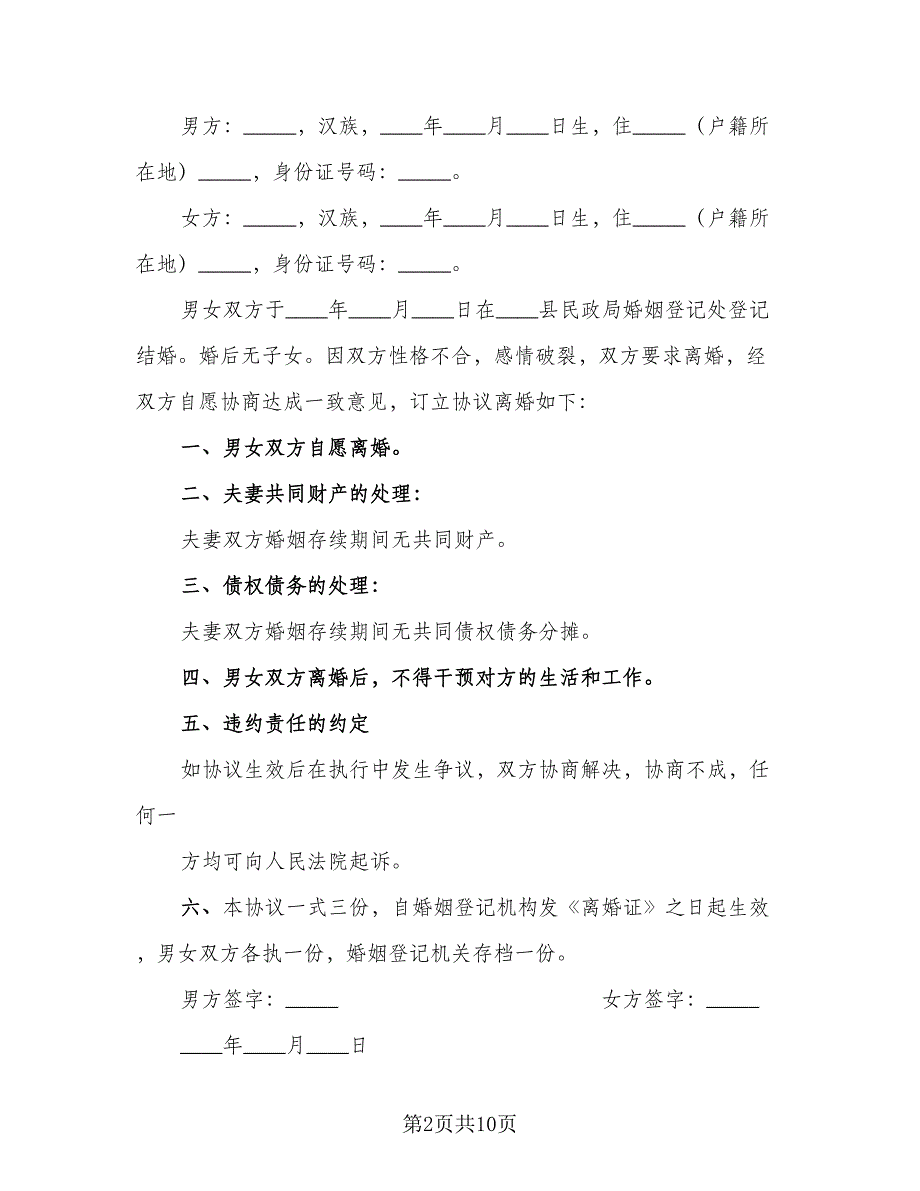 男方：_____，汉族，____年____月____日生，住_____（户籍所
在地）_____，身份证号码：_____。
女方：_____，汉族，____年____月____日生，住_____（户籍所
在地）_____，身份证号码：_____。
男女双方于____年____月____日在____县民政局婚姻登记处登记
结婚。婚后无子女。因双方性格不合，感情破裂，双方要求离婚，经
双方自愿协商达成一致意见，订立协议离婚如下：
一、男女双方自愿离婚。
二、夫妻共同财产的处理：
夫妻双方婚姻存续期间无共同财产。
三、债权债务的处理：
夫妻双方婚姻存续期间无共同债权债务分摊。
四、男女双方离婚后，不得干预对方的生活和工作。
五、违约责任的约定
如协议生效后在执行中发生争议，双方协商解决，协商不成，任
何一
方均可向人民法院起诉。
六、本协议一式三份，自婚姻登记机构发《离婚证》之日起生效
，男女双方各执一份，婚姻登记机关存档一份。
男方签字：_____ 女方签字：_____
____年____月____日
第2页共10页